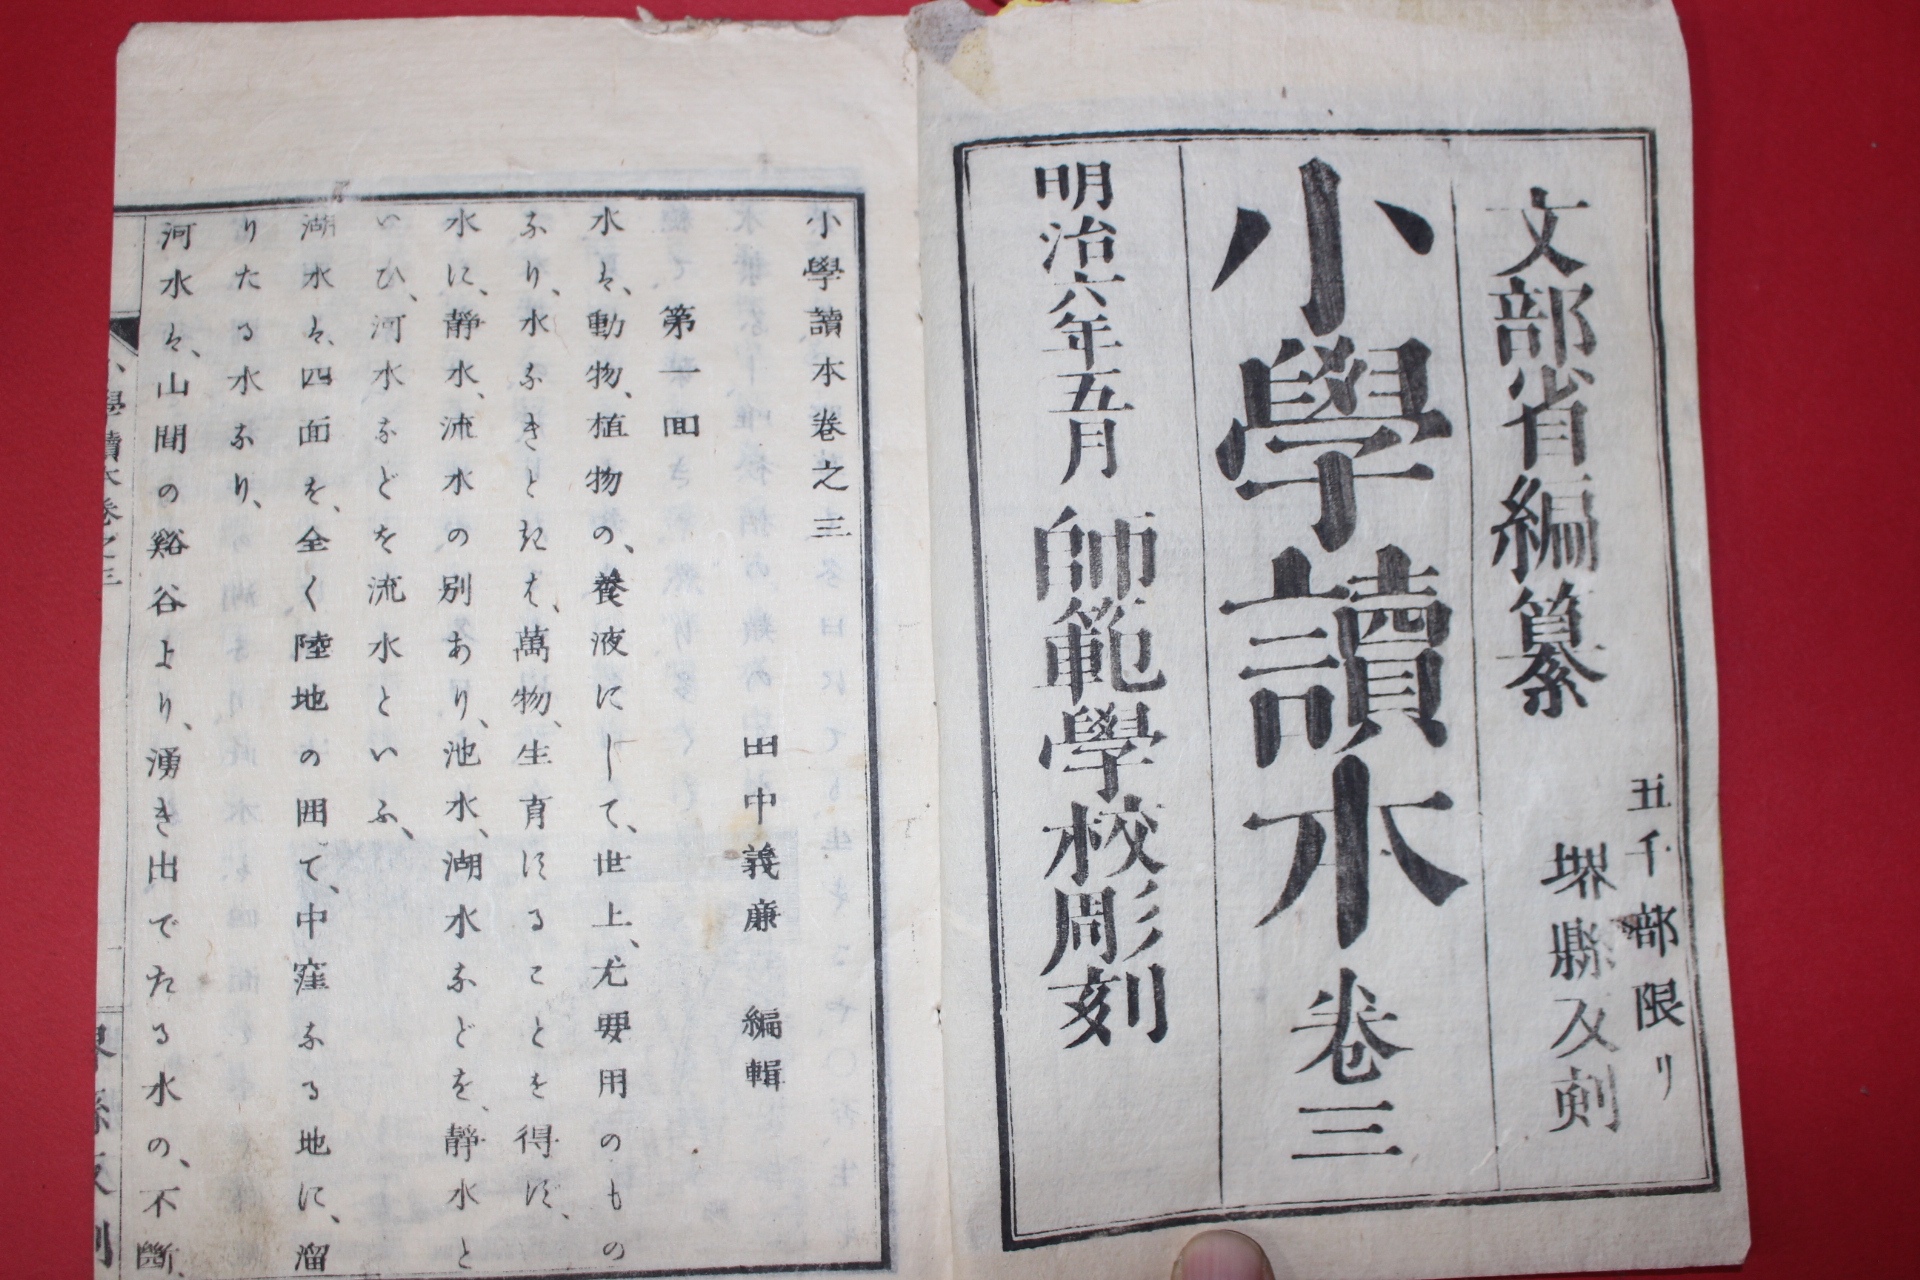 五千部限リ
文部省編纂
堺縣反刻
小學讀本 卷三
明治六年五月 師範學校彫刻
小學讀本卷之三
田中義廉 編輯
第一回
水は、動物、植物の、養液にして、世上、尤要用のもの
なり、水なきときは、萬物、生育することを得ず、
水に、静水、流水の別あり、池水、湖水などを、静水と
いひ、河水などを流水といふ、
湖水は、四面を、全く陸地の囲て、中窪なる地に、溜
りたる水なり、
河水は、山間の谿谷より、湧き出でたる水の、不斷、
小學讀本卷之三
縣反刻